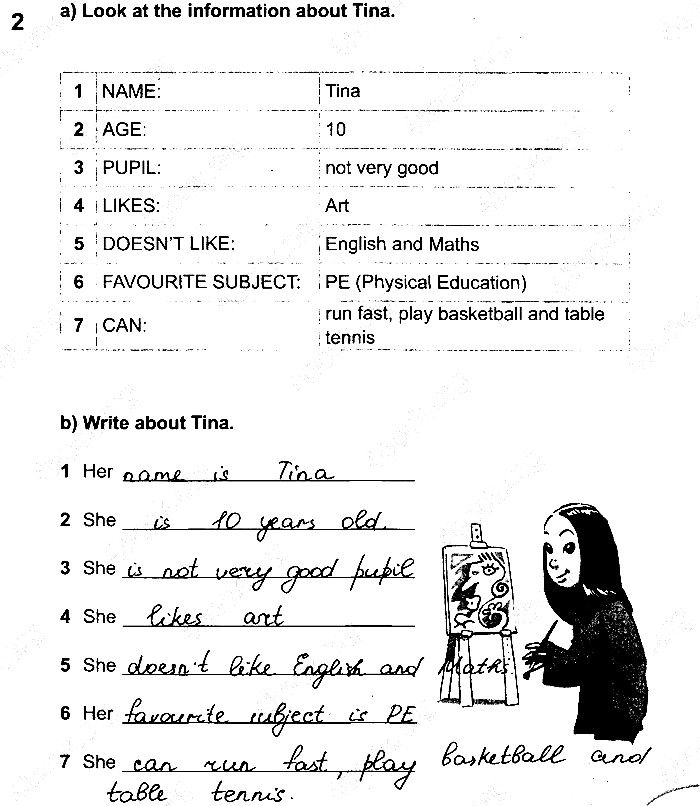 2
a) Look at the information about Tina.
1 NAME: Tina
2 AGE: 10
3 PUPIL: not very good
4 LIKES: Art
5 DOESN'T LIKE: English and Maths
6 FAVOURITE SUBJECT: PE (Physical Education)
7 CAN: run fast, play basketball and table
tennis
b) Write about Tina.
1 Her name is Tina
2 She is 10 years old.
3 She is not very good pupil
4 She likes art
5 She doesn't like English and Maths
6 Her favourite subject is PE
7 She can run fast, play basketball and
table tennis.